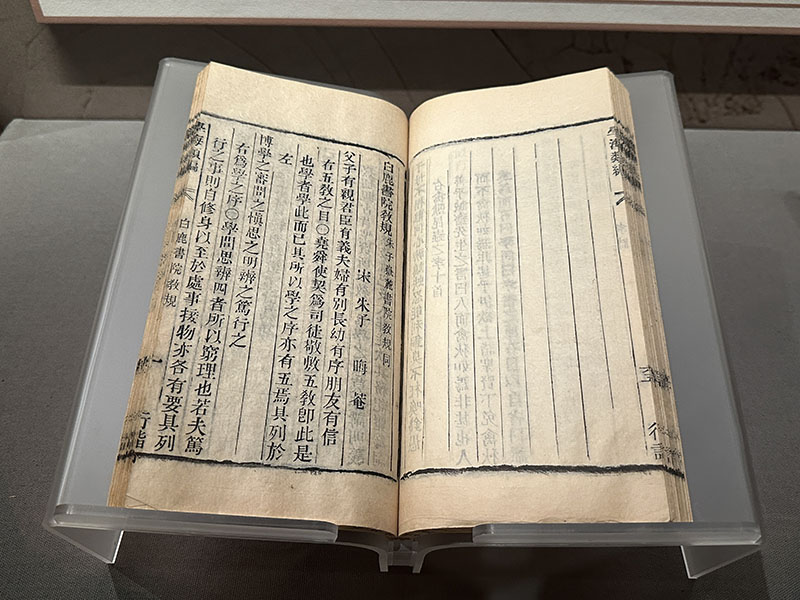 學海類編
行詣
白鹿書院教規 朱子嶽麓書院教規同
宋 朱子 晦菴
父子有親君臣有義夫婦有別長幼有序朋友有信
右五教之目○堯舜使契爲司徒敬敷五教卽此是
也學者學此而已其所以學之序亦有五焉具列於
左
博學之審問之愼思之明辨之篤行之
右爲學之序○學問思辨四者所以窮理也若夫篤
行之事則自修身以至於處事接物亦各有要具列
學海類編
白鹿書院教規
一
行詣